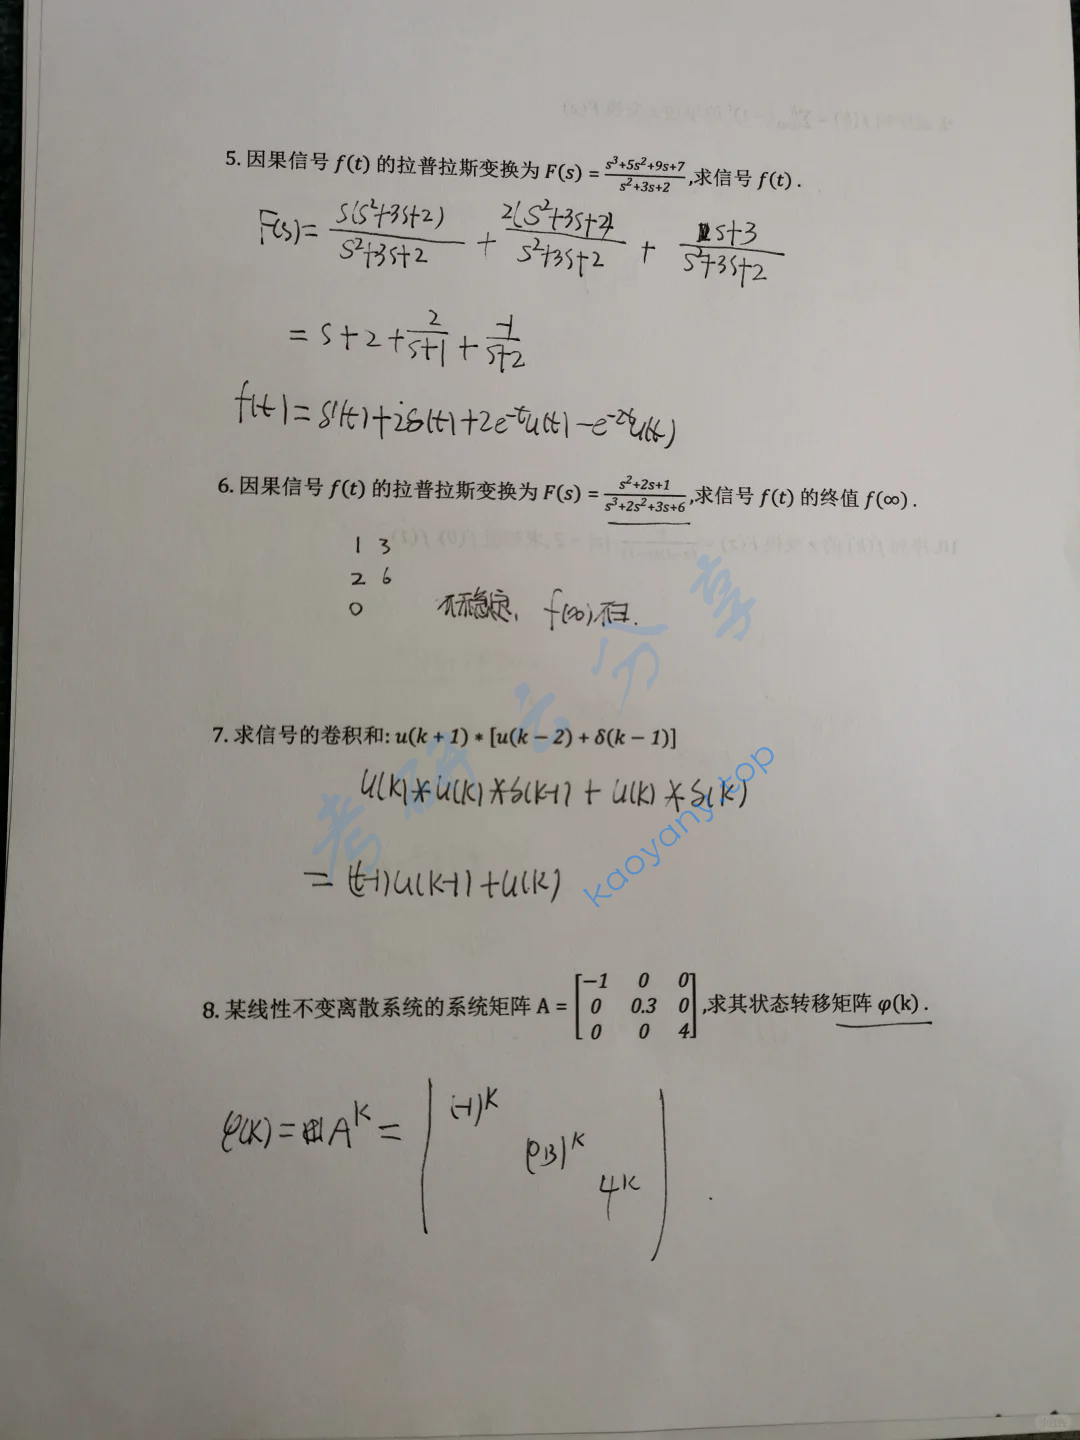 5. 因果信号 f(t) 的拉普拉斯变换为 F(s) = (s³+5s²+9s+7)/(s²+3s+2) ,求信号 f(t) .
F(s) = s(s²+3s+2)/(s²+3s+2) + 2(s²+3s+2)/(s²+3s+2) + (s+3)/(s²+3s+2)
= s+2+ 2/(s+1) + -1/(s+2)
f(t) = δ'(t)+2δ(t)+2e^{-t}u(t)-e^{-2t}u(t)
6. 因果信号 f(t) 的拉普拉斯变换为 F(s) = (s²+2s+1)/(s³+2s²+3s+6) ,求信号 f(t) 的终值 f(∞) .
1 3
2 6
0 不稳定, f(∞)不
7. 求信号的卷积和: u(k + 1) * [u(k − 2) + δ(k − 1)]
u(k)*u(k)*δ(k-1) + u(k)*δ(k)
= (t-1)u(k-1)+u(k)
8. 某线性不变离散系统的系统矩阵 A = [−1 0 0
0 0.3 0
0 0 4] ,求其状态转移矩阵 φ(k) .
φ(k) = A^k =
(-1)^k
(0.3)^k
4^k
考研云分享
kaoyany.top